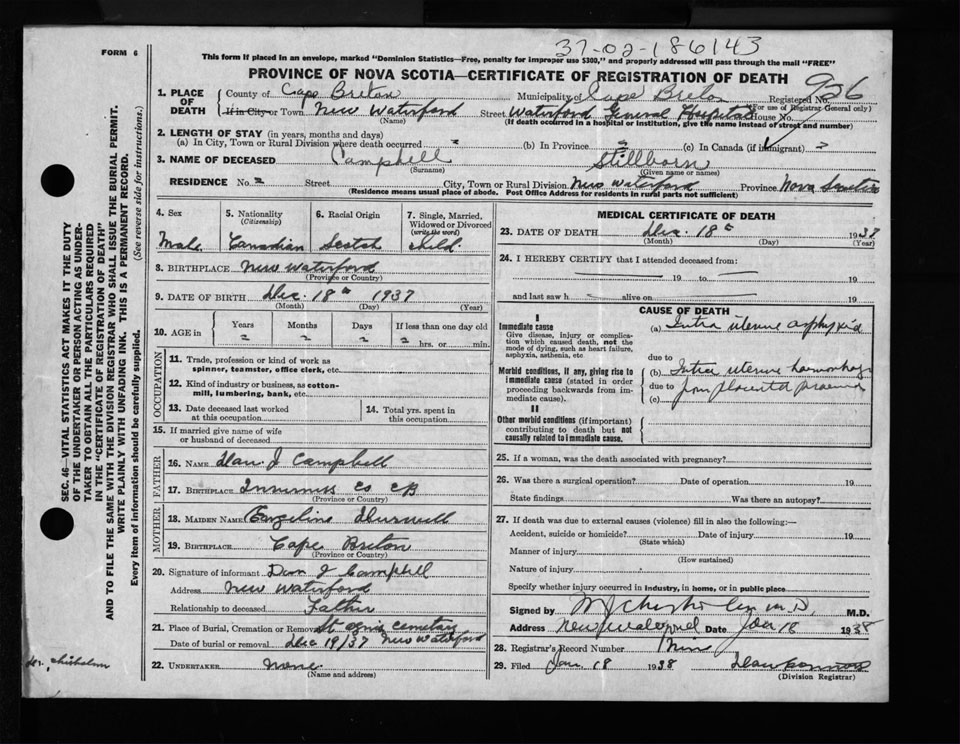 37-02-186143
FORM 6
This form if placed in an envelope, marked "Dominion Statistics—Free, penalty for improper use $300," and properly addressed will pass through the mail "FREE"
PROVINCE OF NOVA SCOTIA—CERTIFICATE OF REGISTRATION OF DEATH
926
1. PLACE OF DEATH
County of Cape Breton Municipality of Cape Breton Registered No.
(For use of Registrar General only)
If in City or Town New Waterford Street Waterford General Hospital House No.
(Name) (If death occurred in a hospital or institution, give the name instead of street and number)
2. LENGTH OF STAY (in years, months and days)
(a) In City, Town or Rural Division where death occurred (b) In Province (c) In Canada (if immigrant)
3. NAME OF DECEASED Campbell Stillborn
(Surname) (Given name or names)
RESIDENCE No. Street City, Town or Rural Division New Waterford Province Nova Scotia
(Residence means usual place of abode. Post Office Address for residents in rural parts not sufficient)
SEC. 46—VITAL STATISTICS ACT MAKES IT THE DUTY
OF THE UNDERTAKER OR PERSON ACTING AS UNDER-
TAKER TO OBTAIN ALL THE PARTICULARS REQUIRED
IN THE "CERTIFICATE OF REGISTRATION OF DEATH"
AND TO FILE THE SAME WITH THE DIVISION REGISTRAR WHO SHALL ISSUE THE BURIAL PERMIT.
WRITE PLAINLY WITH UNFADING INK. THIS IS A PERMANENT RECORD.
Every item of information should be carefully supplied. (See reverse side for instructions.)
4. Sex 5. Nationality (Citizenship) 6. Racial Origin 7. Single, Married, Widowed or Divorced (write the word)
Male Canadian Scotch child
8. BIRTHPLACE New Waterford
(Province or Country)
9. DATE OF BIRTH Dec. 18th 1937
(Month) (Day) (Year)
10. AGE in Years Months Days If less than one day old
hrs. or min.
OCCUPATION
11. Trade, profession or kind of work as
spinner, teamster, office clerk, etc.
12. Kind of industry or business, as cotton-
mill, lumbering, bank, etc.
13. Date deceased last worked
at this occupation
14. Total yrs. spent in
this occupation
15. If married give name of wife
or husband of deceased
FATHER
16. NAME Dan J Campbell
17. BIRTHPLACE Inverness Co CB
(Province or Country)
MOTHER
18. MAIDEN NAME
19. BIRTHPLACE Cape Breton
(Province or Country)
20. Signature of informant Dan J Campbell
Address New Waterford
Relationship to deceased Father
21. Place of Burial, Cremation or Removal St Agnes Cemetary
Date of burial or removal Dec 19/37 New Waterford
22. UNDERTAKER none
(Name and address)
Dr. Chisholm
MEDICAL CERTIFICATE OF DEATH
23. DATE OF DEATH Dec. 18th 1937
(Month) (Day) (Year)
24. I HEREBY CERTIFY that I attended deceased from:
19 to 19
and last saw h alive on 19
CAUSE OF DEATH
I
Immediate cause
Give disease, injury or complication which caused death, not the mode of dying, such as heart failure, asphyxia, asthenia, etc
(a) Intra uterine asphyxia
due to
Morbid conditions, if any, giving rise to immediate cause (stated in order proceeding backwards from immediate cause).
(b) Intra uterine haemorrhage
due to from placenta praevia
(c)
II
Other morbid conditions (if important) contributing to death but not causally related to immediate cause.
25. If a woman, was the death associated with pregnancy?
26. Was there a surgical operation? Date of operation 19
State findings Was there an autopsy?
27. If death was due to external causes (violence) fill in also the following:—
Accident, suicide or homicide? Date of injury 19
(State which)
Manner of injury
(How sustained)
Nature of injury
Specify whether injury occurred in industry, in home, or in public place
Signed by M.D.
Address New Waterford Date Jan 18 1938
28. Registrar's Record Number
29. Filed Jan. 18 1938
(Division Registrar)